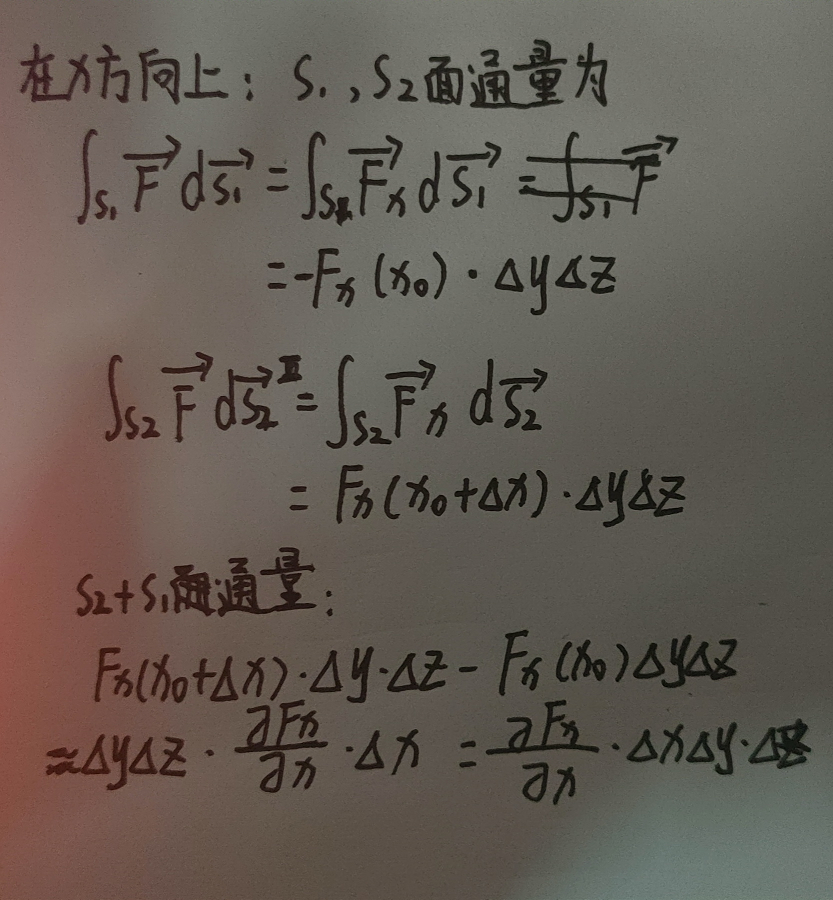 在x方向上：S₁,S₂面通量为
∫_{S₁} F⃗ dS⃗₁ = ∫_{S₁} F⃗ₓ dS⃗₁ = ∫_{S₁} F⃗
= -Fₓ(x₀)·ΔyΔz
∫_{S₂} F⃗ dS⃗₂ = ∫_{S₂} F⃗ₓ dS⃗₂
= Fₓ(x₀+Δx)·ΔyΔz
S₂+S₁面通量：
Fₓ(x₀+Δx)·Δy·Δz - Fₓ(x₀)ΔyΔz
≈ΔyΔz·∂Fₓ/∂x·Δx = ∂Fₓ/∂x·ΔxΔy·Δz